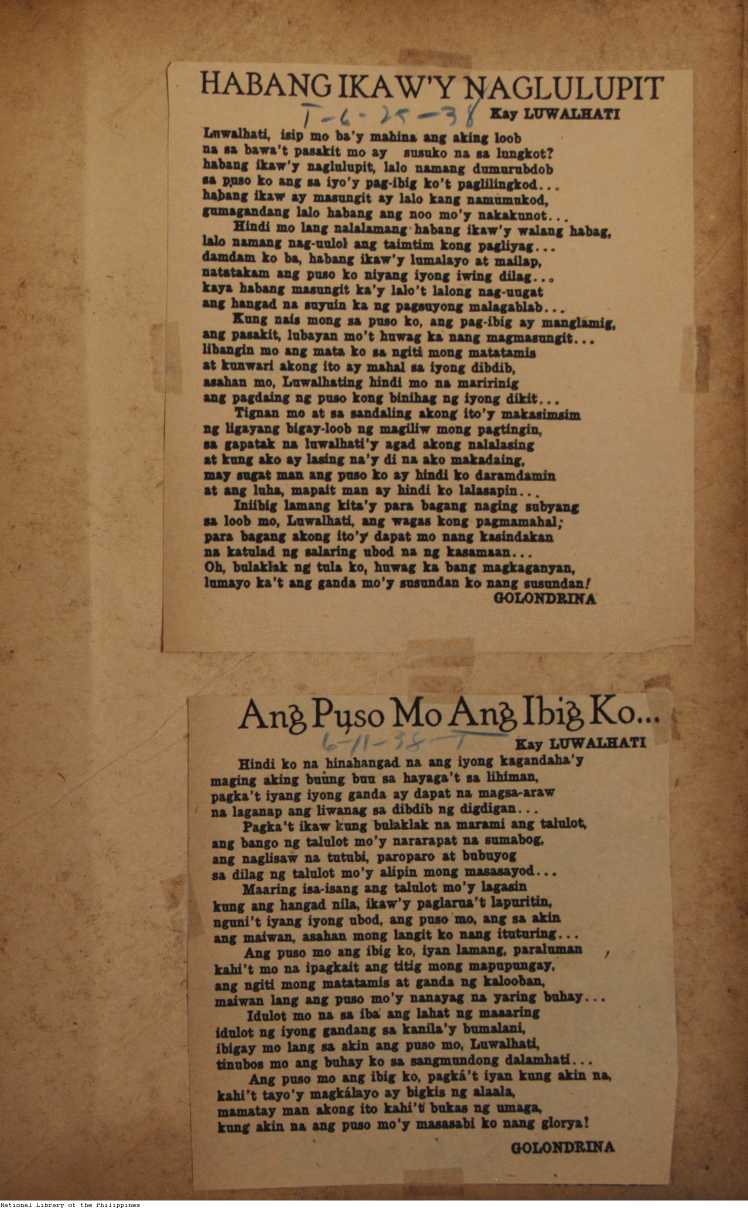 HABANG IKAW'Y NAGLULUPIT
T-6-25-38
Kay LUWALHATI
Luwalhati, isip mo ba'y mahina ang aking loob
na sa bawa't pasakit mo ay susuko na sa lungkot?
habang ikaw'y naglulupit, lalo namang dumurubdob
sa puso ko ang sa iyo'y pag-ibig ko't paglilingkod...
habang ikaw ay masungit ay lalo kang namumukod,
gumagandang lalo habang ang noo mo'y nakakunot...
Hindi mo lang nalalamang habang ikaw'y walang habag,
lalo namang nag-uulol ang taimtim kong pagliyag...
damdam ko ba, habang ikaw'y lumalayo at mailap,
natatakam ang puso ko niyang iyong iwing dilag...
kaya habang masungit ka'y lalo't lalong nag-uugat
ang hangad na suyuin ka ng pagsuyong malagablab...
Kung nais mong sa puso ko, ang pag-ibig ay manglamig,
ang pasakit, lubayan mo't huwag ka nang magmasungit...
libangin mo ang mata ko sa ngiti mong matatamis
at kunwari akong ito ay mahal sa iyong dibdib,
asahan mo, Luwalhating hindi mo na maririnig
ang pagdaing ng puso kong binihag ng iyong dikit...
Tignan mo at sa sandaling akong ito'y makasimsim
ng ligayang bigay-loob ng magiliw mong pagtingin,
sa gapatak na luwalhati'y agad akong nalalasing
at kung ako ay lasing na'y di na ako makadaing,
may sugat man ang puso ko ay hindi ko daramdamin
at ang luha, mapait man ay hindi ko lalasapin...
Iniibig lamang kita'y para bagang naging subyang
sa loob mo, Luwalhati, ang wagas kong pagmamahal;
para bagang akong ito'y dapat mo nang kasindakan
na katulad ng salaring ubod na ng kasamaan...
Oh, bulaklak ng tula ko, huwag ka bang magkaganyan,
lumayo ka't ang ganda mo'y susundan ko nang susundan!
GOLONDRINA
Ang Puso Mo Ang Ibig Ko...
6-11-38-T
Kay LUWALHATI
Hindi ko na hinahangad na ang iyong kagandaha'y
maging aking buung buu sa hayaga't sa lihiman,
pagka't iyang iyong ganda ay dapat na magsa-araw
na laganap ang liwanag sa dibdib ng digdigan...
Pagka't ikaw kung bulaklak na marami ang talulot,
ang bango ng talulot mo'y nararapat na sumabog,
ang naglisaw na tutubi, paroparo at bubuyog
sa dilag ng talulot mo'y alipin mong masasayod...
Maaring isa-isang ang talulot mo'y lagasin
kung ang hangad nila, ikaw'y paglarua't lapuritin,
nguni't iyang iyong ubod, ang puso mo, ang sa akin
ang maiwan, asahan mong langit ko nang ituturing...
Ang puso mo ang ibig ko, iyan lamang, paraluman
kahi't mo na ipagkait ang titig mong mapupungay,
ang ngiti mong matatamis at ganda ng kalooban,
maiwan lang ang puso mo'y nanayag na yaring buhay...
Idulot mo na sa iba ang lahat ng maaaring
idulot ng iyong gandang sa kanila'y bumalani,
ibigay mo lang sa akin ang puso mo, Luwalhati,
tinubos mo ang buhay ko sa sangmundong dalamhati...
Ang puso mo ang ibig ko, pagká't iyan kung akin na,
kahi't tayo'y magkálayo ay bigkis ng alaala,
mamatay man akong ito kahi't bukas ng umaga,
kung akin na ang puso mo'y masasabi ko nang glorya!
GOLONDRINA
National Library of the Philippines